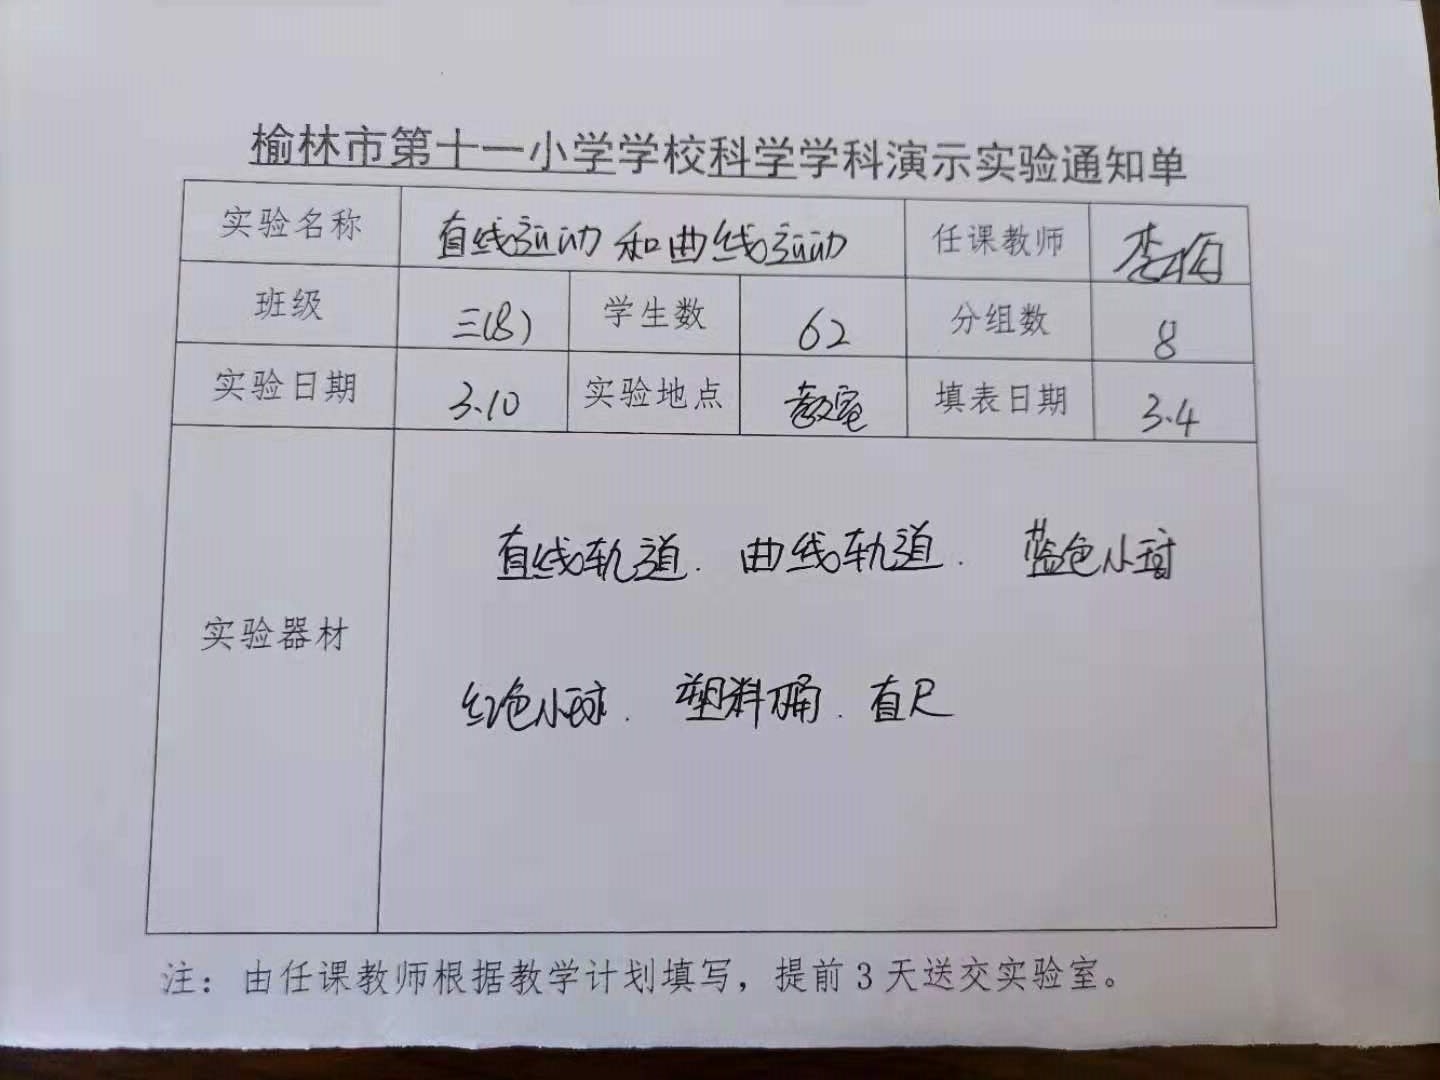 榆林市第十一小学学校科学学科演示实验通知单
实验名称 直线运动和曲线运动 任课教师 李
班级 三(8) 学生数 62 分组数 8
实验日期 3.10 实验地点 教室 填表日期 3.4
实验器材
直线轨道. 曲线轨道. 蓝色小球
红色小球. 塑料桶. 直尺
注：由任课教师根据教学计划填写，提前 3 天送交实验室。